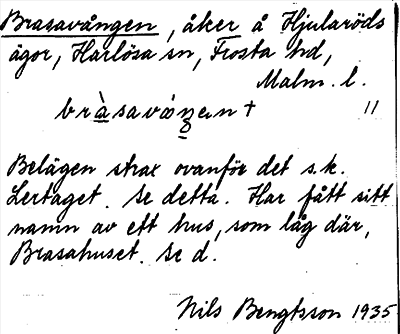 Brasavången, åker å Hjularöds
ägor, Harlösa sn, Frosta hd,
Malm. l.
bràsavåŋen + 11
Belägen strax ovanför det s.k.
Lertaget. Se detta. Har fått sitt
namn av ett hus, som låg där,
Brasahuset. Se d.
Nils Bengtsson 1935